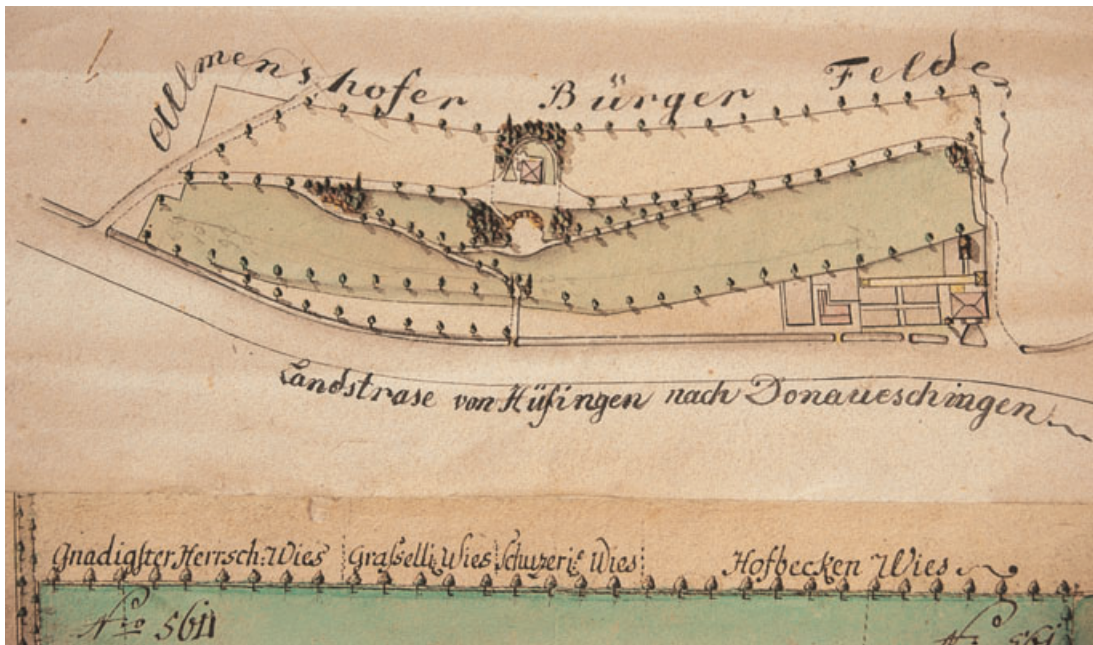 Allmenshofer Bürger Felde
Landstrase von Hüfingen nach Donaueschingen
Gnadigster Herrsch: Wies Grasselli Wies Schuzeris Wies Hofbecken Wies
Nro 561
Nro 561